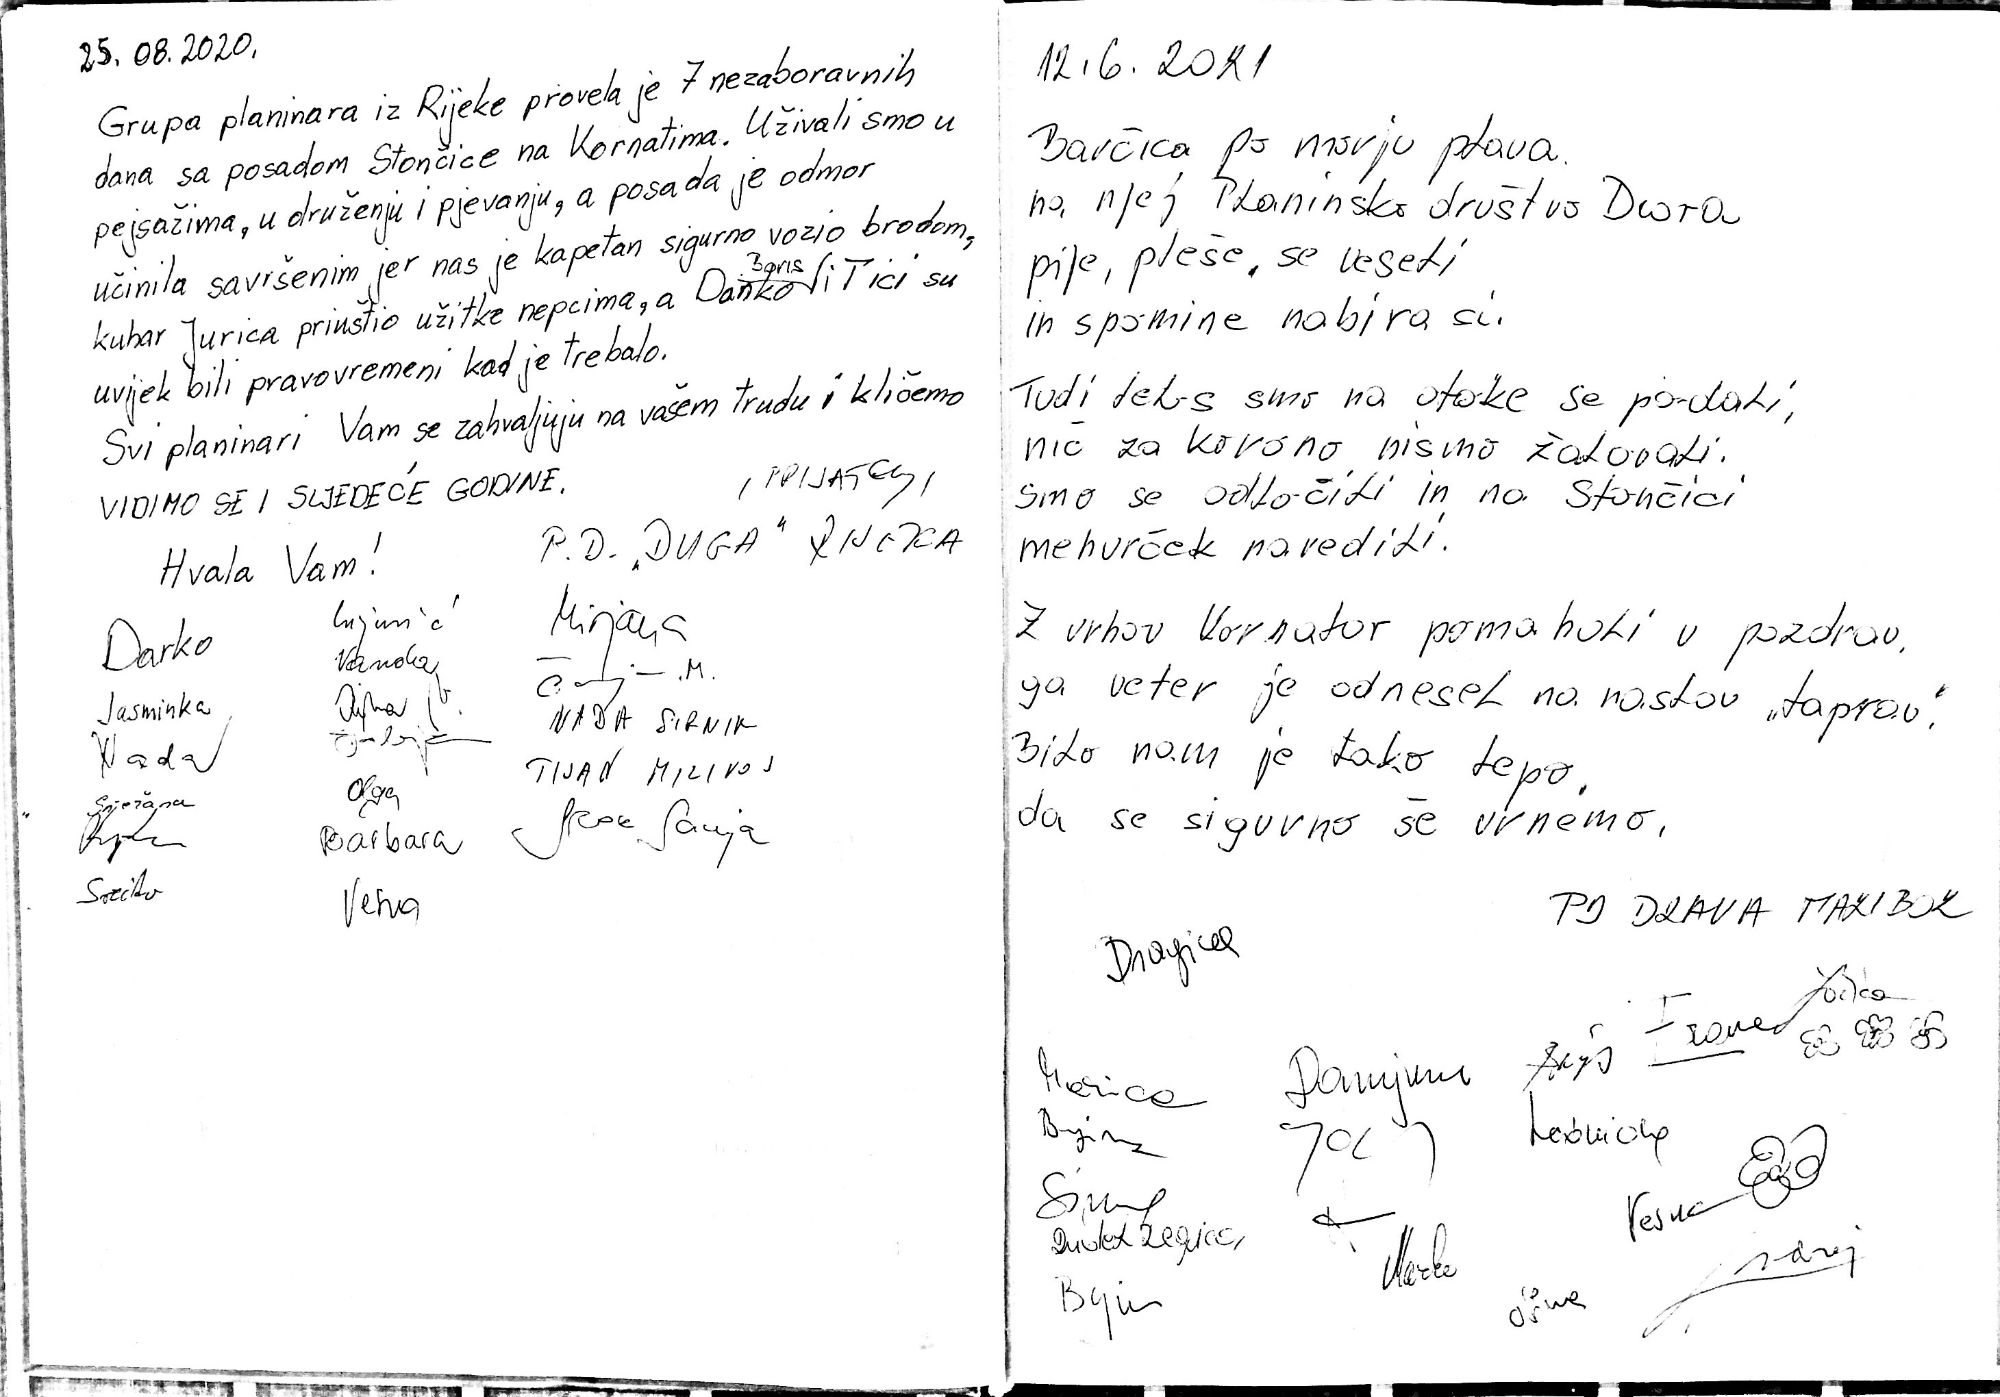 25. 08. 2020.
Grupa planinara iz Rijeke provela je 7 nezaboravnih
dana sa posadom Stončice na Kornatima. Uživali smo u
pejsažima, u druženju i pjevanju, a posada je odmor
učinila savršenim jer nas je kapetan sigurno vozio brodom,
kuhar Jurica priuštio užitke nepcima, a Danko Boris i Tici su
uvijek bili pravovremeni kad je trebalo.
Svi planinari Vam se zahvaljuju na vašem trudu i kličemo
VIDIMO SE I SLJEDEĆE GODINE.
Hvala Vam!
P.D. „DUGA“ RIJEKA
Darko
Mirjana
Vanda
Jasminka
NADA SIRNIK
Nada
TIJAN MILIVOJ
Snježana
Olga
Barbara
Sanja
Srećko
Vesna
12.6.2021
Barčica po morju plava.
na njej Planinsko društvo Drava
pije, pleše, se veseli
in spomine nabira si.
Tudi letos smo na otoke se podali,
nič za korono nismo žalovali.
smo se odločili in na Stončici
mehurček naredili.
Z vrhov Kornator pomahali v pozdrav,
ga veter je odnesel na naslov „taprav“.
Bilo nam je tako lepo,
da se sigurno še vrnemo.
PD DRAVA MARIBOR
Dragica
Marica
Damjana
Vesna
Marko